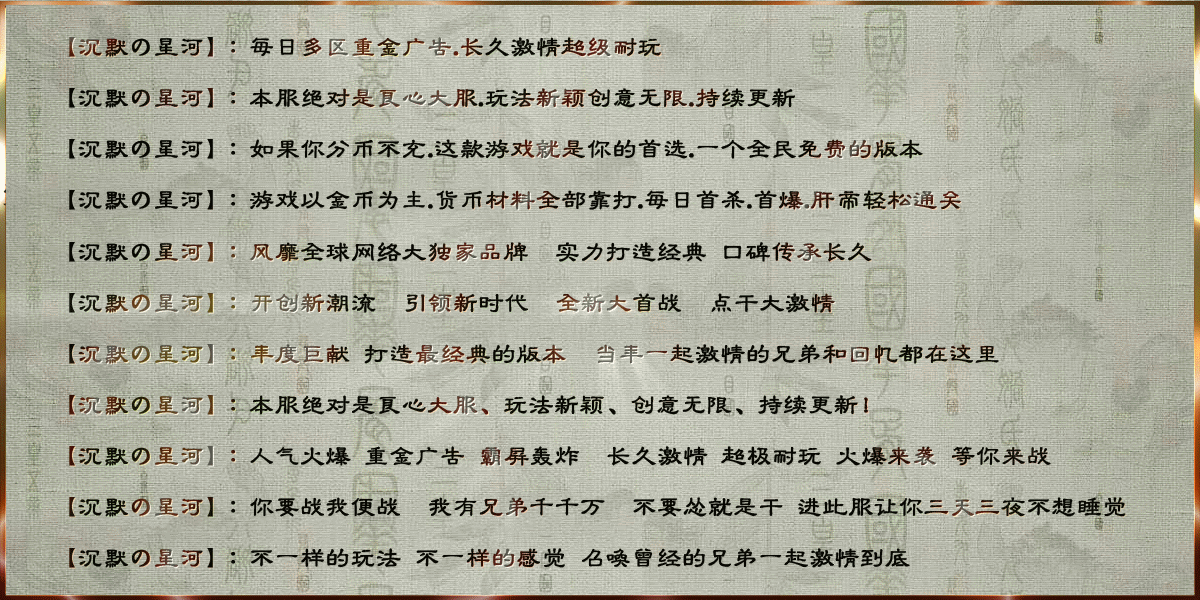 【沉默の星河】：每日多区重金广告.长久激情超级耐玩
【沉默の星河】：本服绝对是良心大服.玩法新颖创意无限.持续更新
【沉默の星河】：如果你分币不充.这款游戏就是你的首选.一个全民免费的版本
【沉默の星河】：游戏以金币为主.货币材料全部靠打.每日首杀.首爆.肝帝轻松通关
【沉默の星河】：风靡全球网络大独家品牌 实力打造经典 口碑传承长久
【沉默の星河】：开创新潮流 引领新时代 全新大首战 点干大激情
【沉默の星河】：年度巨献 打造最经典的版本 当年一起激情的兄弟和回忆都在这里
【沉默の星河】：本服绝对是良心大服、玩法新颖、创意无限、持续更新！
【沉默の星河】：人气火爆 重金广告 霸屏轰炸 长久激情 超极耐玩 火爆来袭 等你来战
【沉默の星河】：你要战我便战 我有兄弟千千万 不要怂就是干 进此服让你三天三夜不想睡觉
【沉默の星河】：不一样的玩法 不一样的感觉 召唤曾经的兄弟一起激情到底